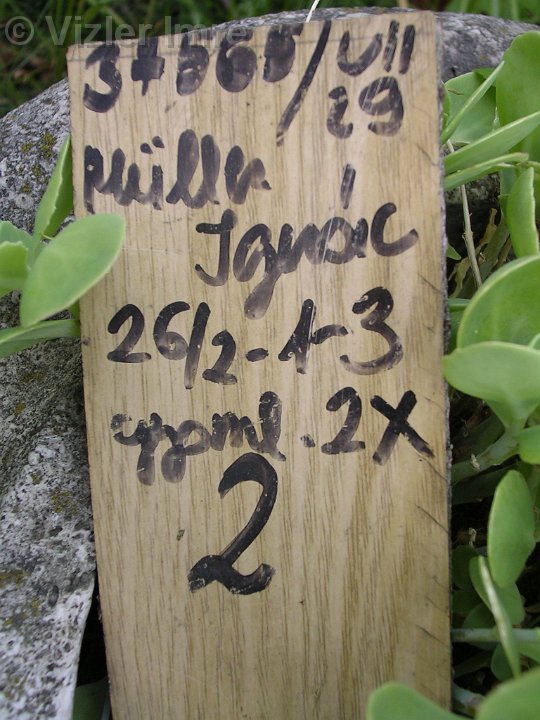 © Vizler Imre
VII
29
Müller
Ignác
26/2-1-3
gypml. 2X
2